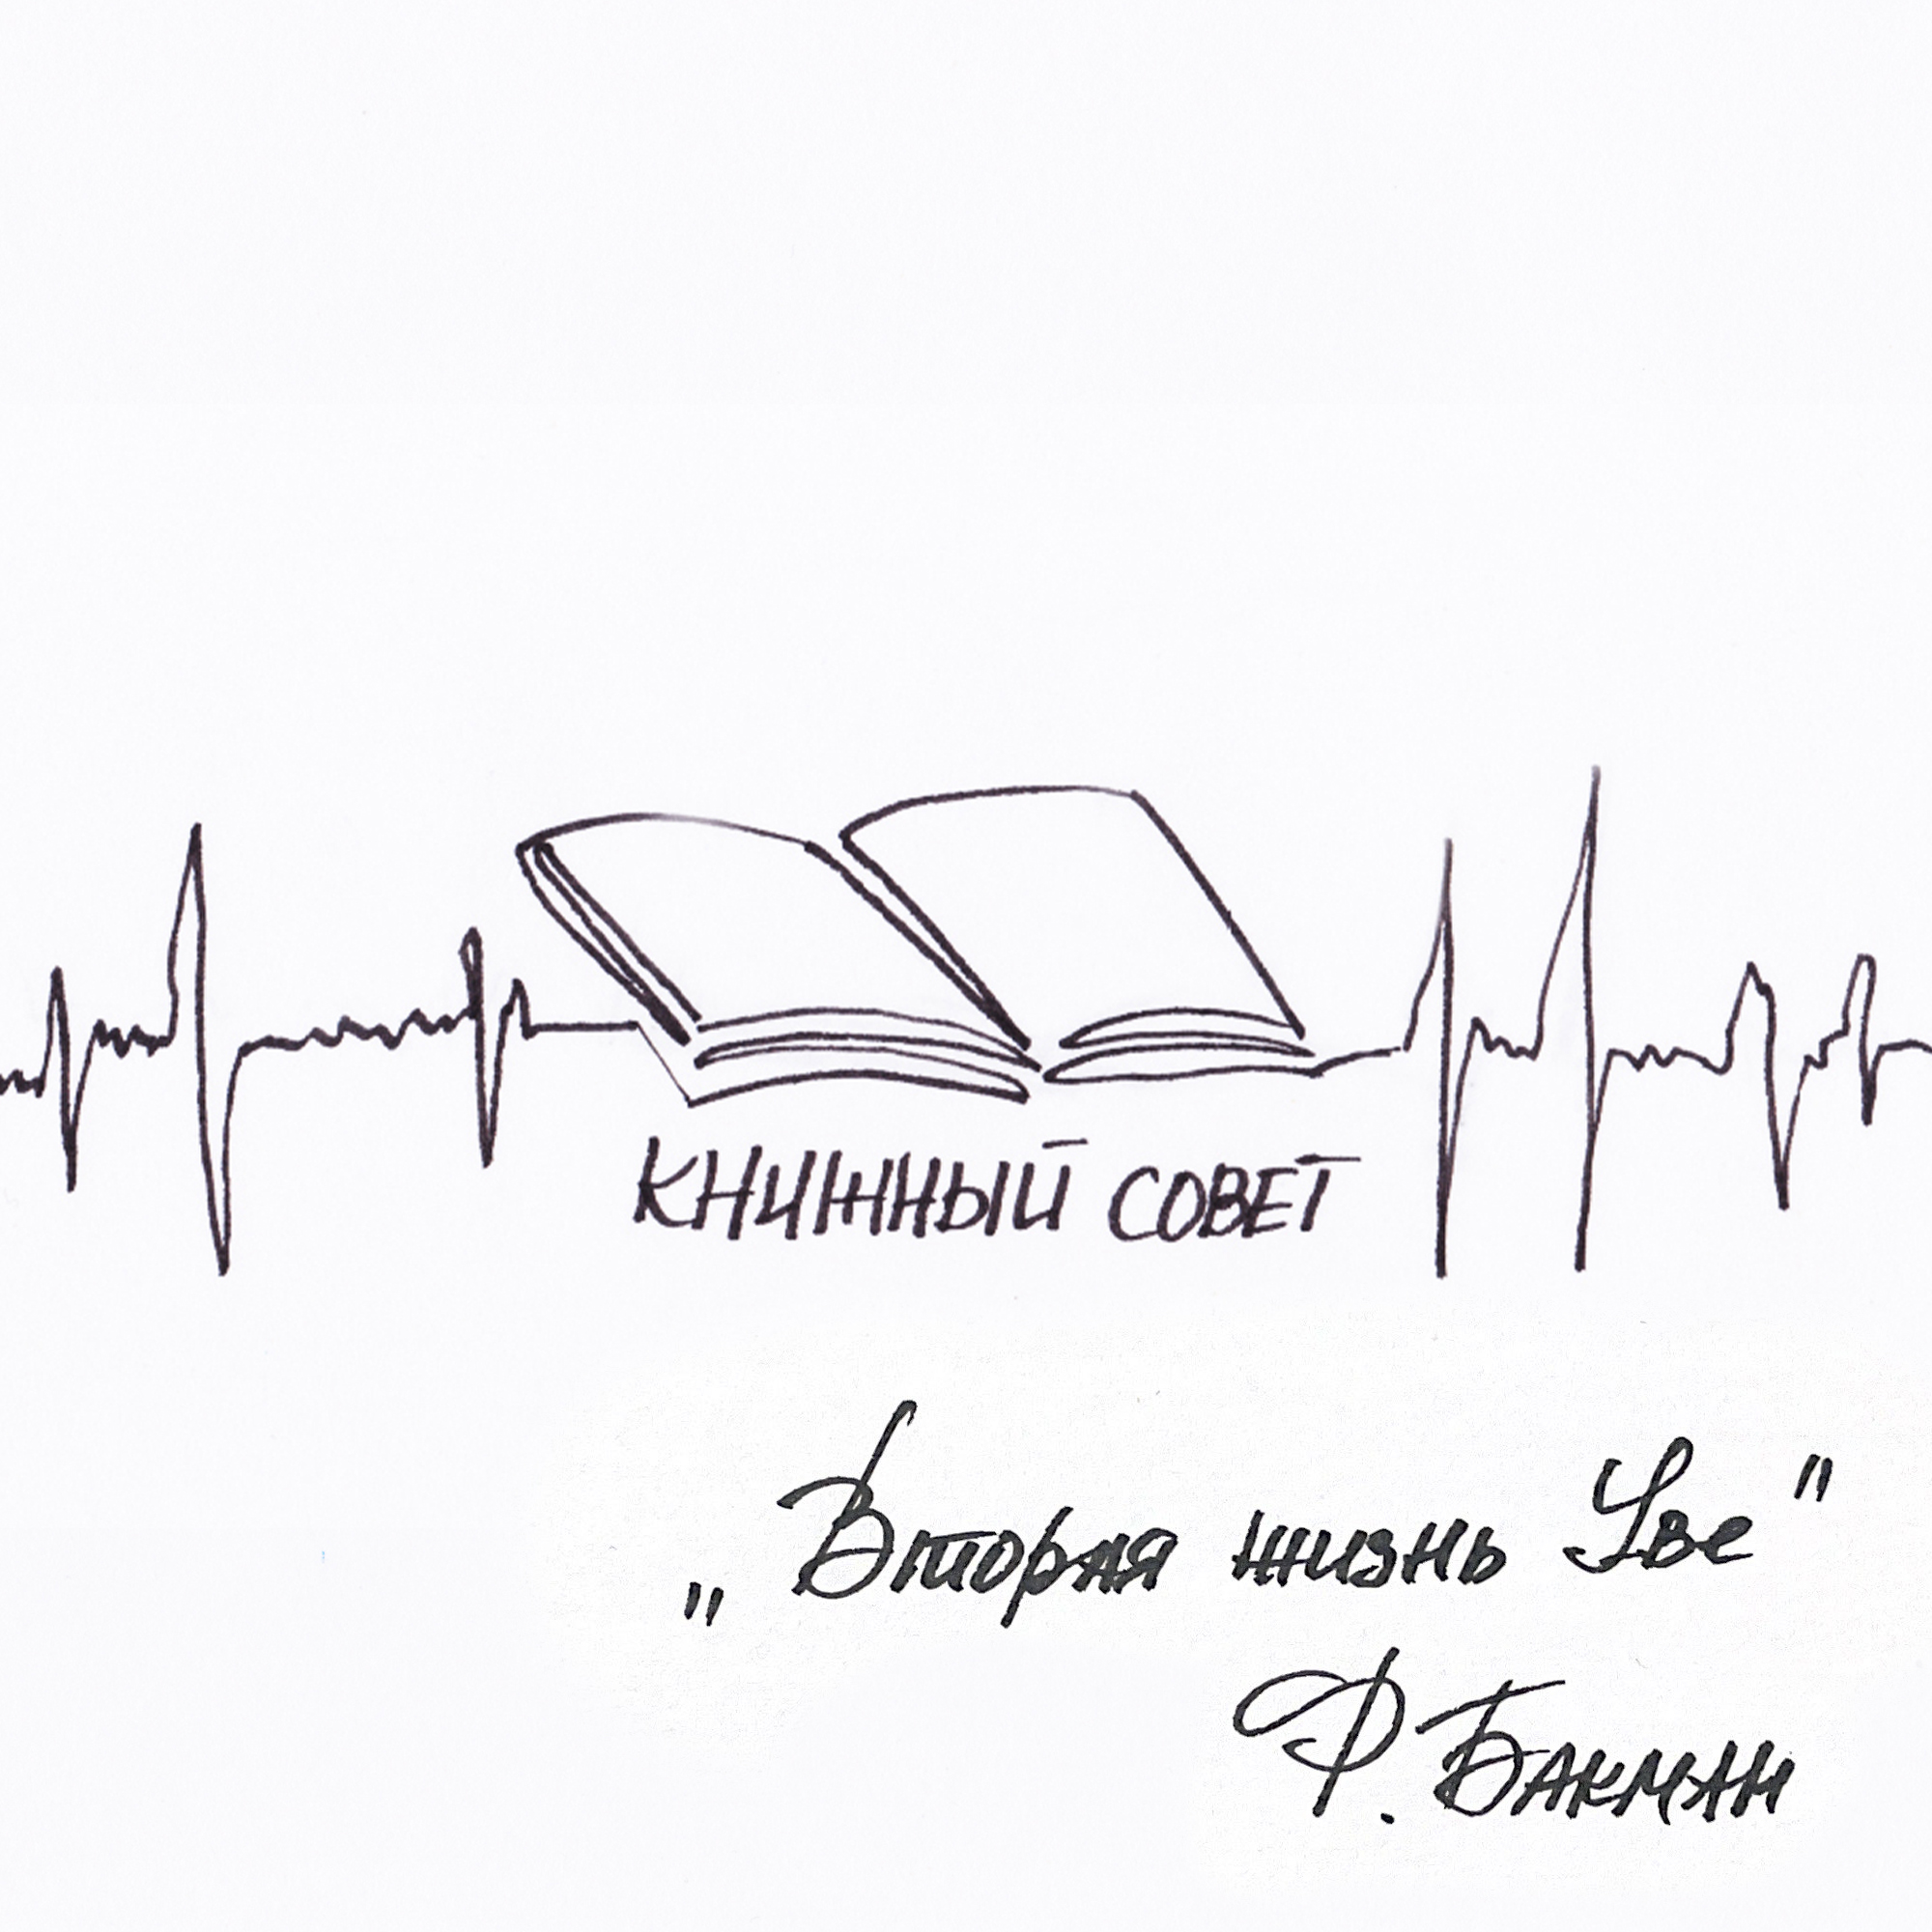 КНИЖНЫЙ СОВЕТ
„Вторая жизнь Уве"
Ф. Бакман